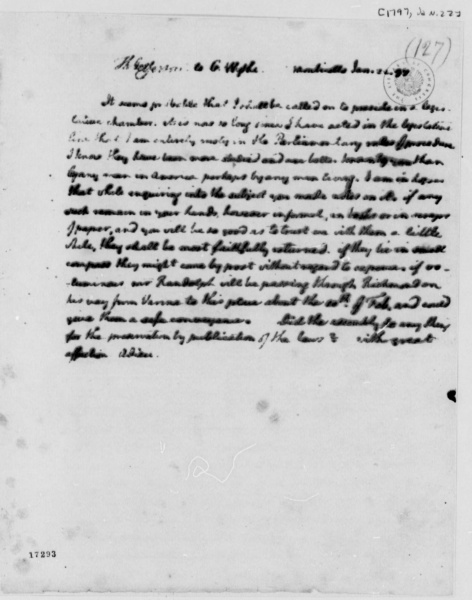 [1797, Jan. 22]
(127)
Th: Jefferson to G. Wythe. Monticello Jan. 22. 97.
It seems probable that I shall be called on to preside in a legis-
lative chamber. it is now so long since I have acted in the legislative
line that I am entirely rusty in the Parliamentary rules of procedure
I know they have been more studied and are better known by you than
by any man in America perhaps by any man living. I am in hopes
that while enquiring into the subject you made notes on it. if any
such remain in your hands, however informal, in books or in scraps
of paper, and you will be so good as to trust me with them a little
while, they shall be most faithfully returned. if they lie in small
compass they might come by post without regard to expense. if vo-
luminous mr Randolph will be passing through Richmond on
his way from Varina to this place about the 10th of Feb. and could
give them a safe conveyance. Did the assembly do any thing
for the preservation by publication of the laws? with great
affection Adieu.
17293